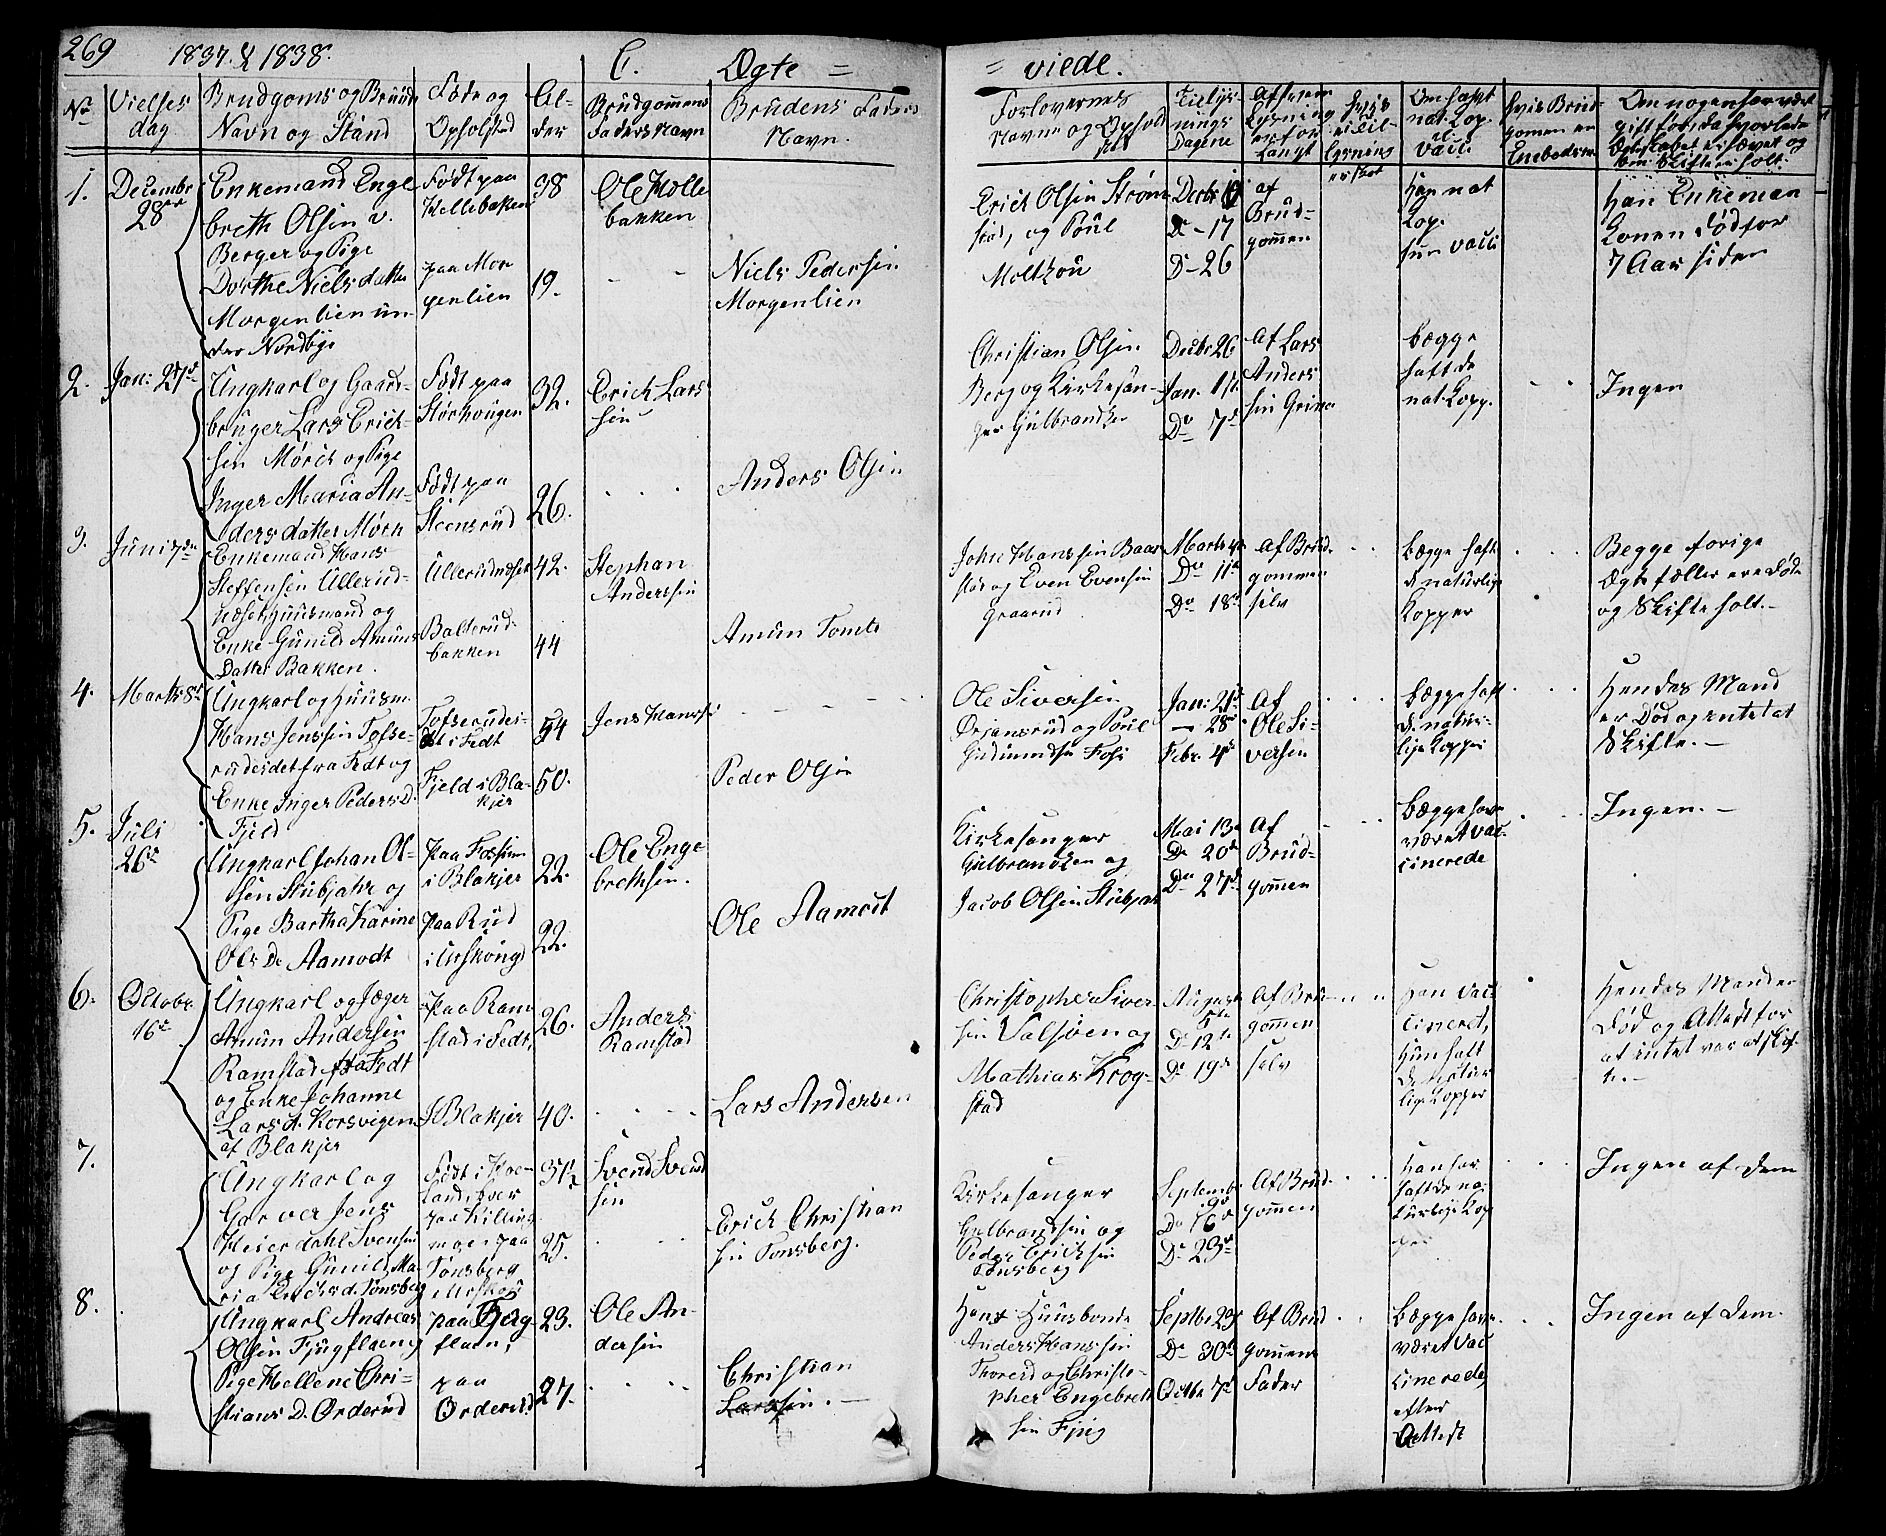 269
1837. & 1838.
C.
Ægte =
= viede.
No
Vielses
dag
Brudgoms og Bruds
Navn og Stand
Føde og
Opholsted
Al-
der
Brudgommens
Faders Navn
Brudens Faders
Navn.
Forlovernes
Navne og Ophold
Tillys-
nings
Dagene
Af hvem
Lysning
er for
langt
Hvis
Om haft
nat. Kop.
el.
Vacc.
Hvis Brud-
gomen en
Embedsm.
1.
Decembr
28de
Enkemand Enge
breth Olsen v.
Berger og Pige
Dorthe Niels datter
Morgenlien un-
der Nordbye
Født paa
Kollebaken
paa Mor
genlien
38
19.
Ole Kolle
bakken
Niels Pedersen
Morgenlien
Erich Olsen Strøm
stad, og Poul
Molthou
Decbr 10
Do 17
Do 26
af
Brud-
gommen
Han nat
Kop.
hun vacci
Han Enkeman
Konen død for
7 Aar siden
2.
Jan: 27de
Ungkarl og Gaard-
bruger Lars Erich-
sen Mörch og Pige
Inger Maria An-
ders datter Mörk
Født paa
Størkougen
Født paa
Steensrud
32.
26.
Erich Lars
sen
Anders Olsen
Christian Olsen
Berg og Kirkesan-
ger Gulbrandsen
Decbr 26
Jan. 1ste
Do 7de
af Lars
Anders
sen Grina
begge
haft de
nat. Kopp.
Ingen
3.
Juni 7de
Enkemand Hans
Steffensen Ullerud-
næset Huusmand og
Enke Gunild Amuns
Datter Bakken.
Ullerudnæset
Balterud-
bakken
42.
44
Stephan
Anderssen
Amun Tomte
John Hanssen Baar
stad og Even Evensen
Graarud
Marts 4de
Do 11te
Do 18de
af Brud
gommen
selv
begge haft
d naturlige
Kopper
Begge forige
Ægtefæller ere døde
og Skifte holt.-
4.
Marts 8de
Ungkarl og Huusm.
Hans Jenssen Tofse-
rudeidet fra Fedt og
Enke Inger Peders D.
Fjeld
Tofserudei-
det i Fedt
Fjeld i Bla-
kjer
54
50.
Jens Hanssen
Peder Olsen
Ole Siversen
Ørjansrud og Poul
Gudmundsen Foss
Jan: 21de
- 28de
Febr. 4de
Af
Ole Si-
versen
begge haft
de natur-
lige Kopper
Hendes Mand
er Død og intet at
Skifte.-
5.
Juli
26de
Ungkarl Johan Ol-
sen Stubjahr og
Pige Bartha Karine
Ols D. Aamodt
paa Fossum
i Blakjer
paa Rud
i Urskoug
22.
22.
Ole Enge
brethsen.
Ole Aamodt
Kirkesanger
Gulbrandsen og
Jacob Olsen Stubjar
Mai 13de
Do 20de
Do 27de
Af
Brud-
gommen
begge have
været vac-
cinerede
Ingen.-
6.
Octobr.
16de
Ungkarl og Jæger
Amun Andersen
Ramstad fra Fedt
og Enke Johanne
Lars d. Korsvigen
af Blakjer
paa Ram
stad i Fedt,
I Blakjer
26.
40.
Anders
Ramstad
Lars Andersen
Christopher Siver-
sen Valsøen og
Mathias Krog-
stad
August
5te
Do 12te
Do 19de
Af Bru-
gommen
selv
Han vac-
cineret,
hun haft
de natur
lige Kopper
Hendes Mand er
Død og Attest for
at intet var at skif-
te.-
7.
Ungkarl og
Garver Jens
Heierdahl Svensen
og Pige Gunild Ma-
ria Erichs d. Tonsberg
Født i Høe-
land i over
paa Killing
moe i paa
Tonsberg
i Urskoug
31½
25.
Svend Svend
sen
Erich Christian
sen Tonsberg.
Kirkesanger
Gulbrandsen og
Peder Erichsen
Tonsberg
Septembr
9de
Do 16de
Do 23de
Af Brud
gommen
Han har
haft de na-
turlige Kop
per
Ingen af dem
8.
Ungkarl Andreas
Olsen Fjugflaen og
Pige Hellene Chri-
stians D. Orderud
paa Fjug
flaen,
paa
Orderud
23.
27.
Ole An-
dersen
Christian
Larssen.-
Hans Huusbonde
Anders Hanssen
Thorerud og Christo-
pher Engebreth
sen Fjug
Septbr 23de
Do 30de
Octbr 7de
Af Brud
gommens
Fader
begge have
været vac
cinerede,
efter
Attest
Ingen af dem